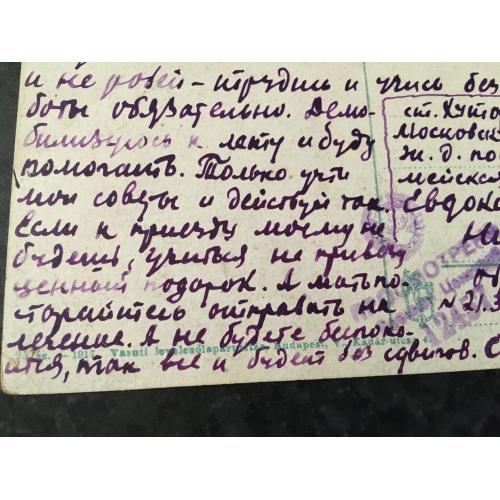 и не робей – трудись и учись без
боты обязательно. Демо-
билизуюсь к лету и буду
помогать. Только учти
мои советы и действуй так.
Если к приезду моему не
будешь учиться не привезу
ценный подарок. А мать по-
старайтесь отправить на
лечение. А не будете беспоко-
ится, так все и будет без сдвигов. С
ст. Хуто
Московско
ж. д. по
мейская
Евдоке
ПРОСМОТРЕНО
N 21.3
1917. Vasuti levelezőlapárusítás, Budapest, V., Kádár-utca 4.